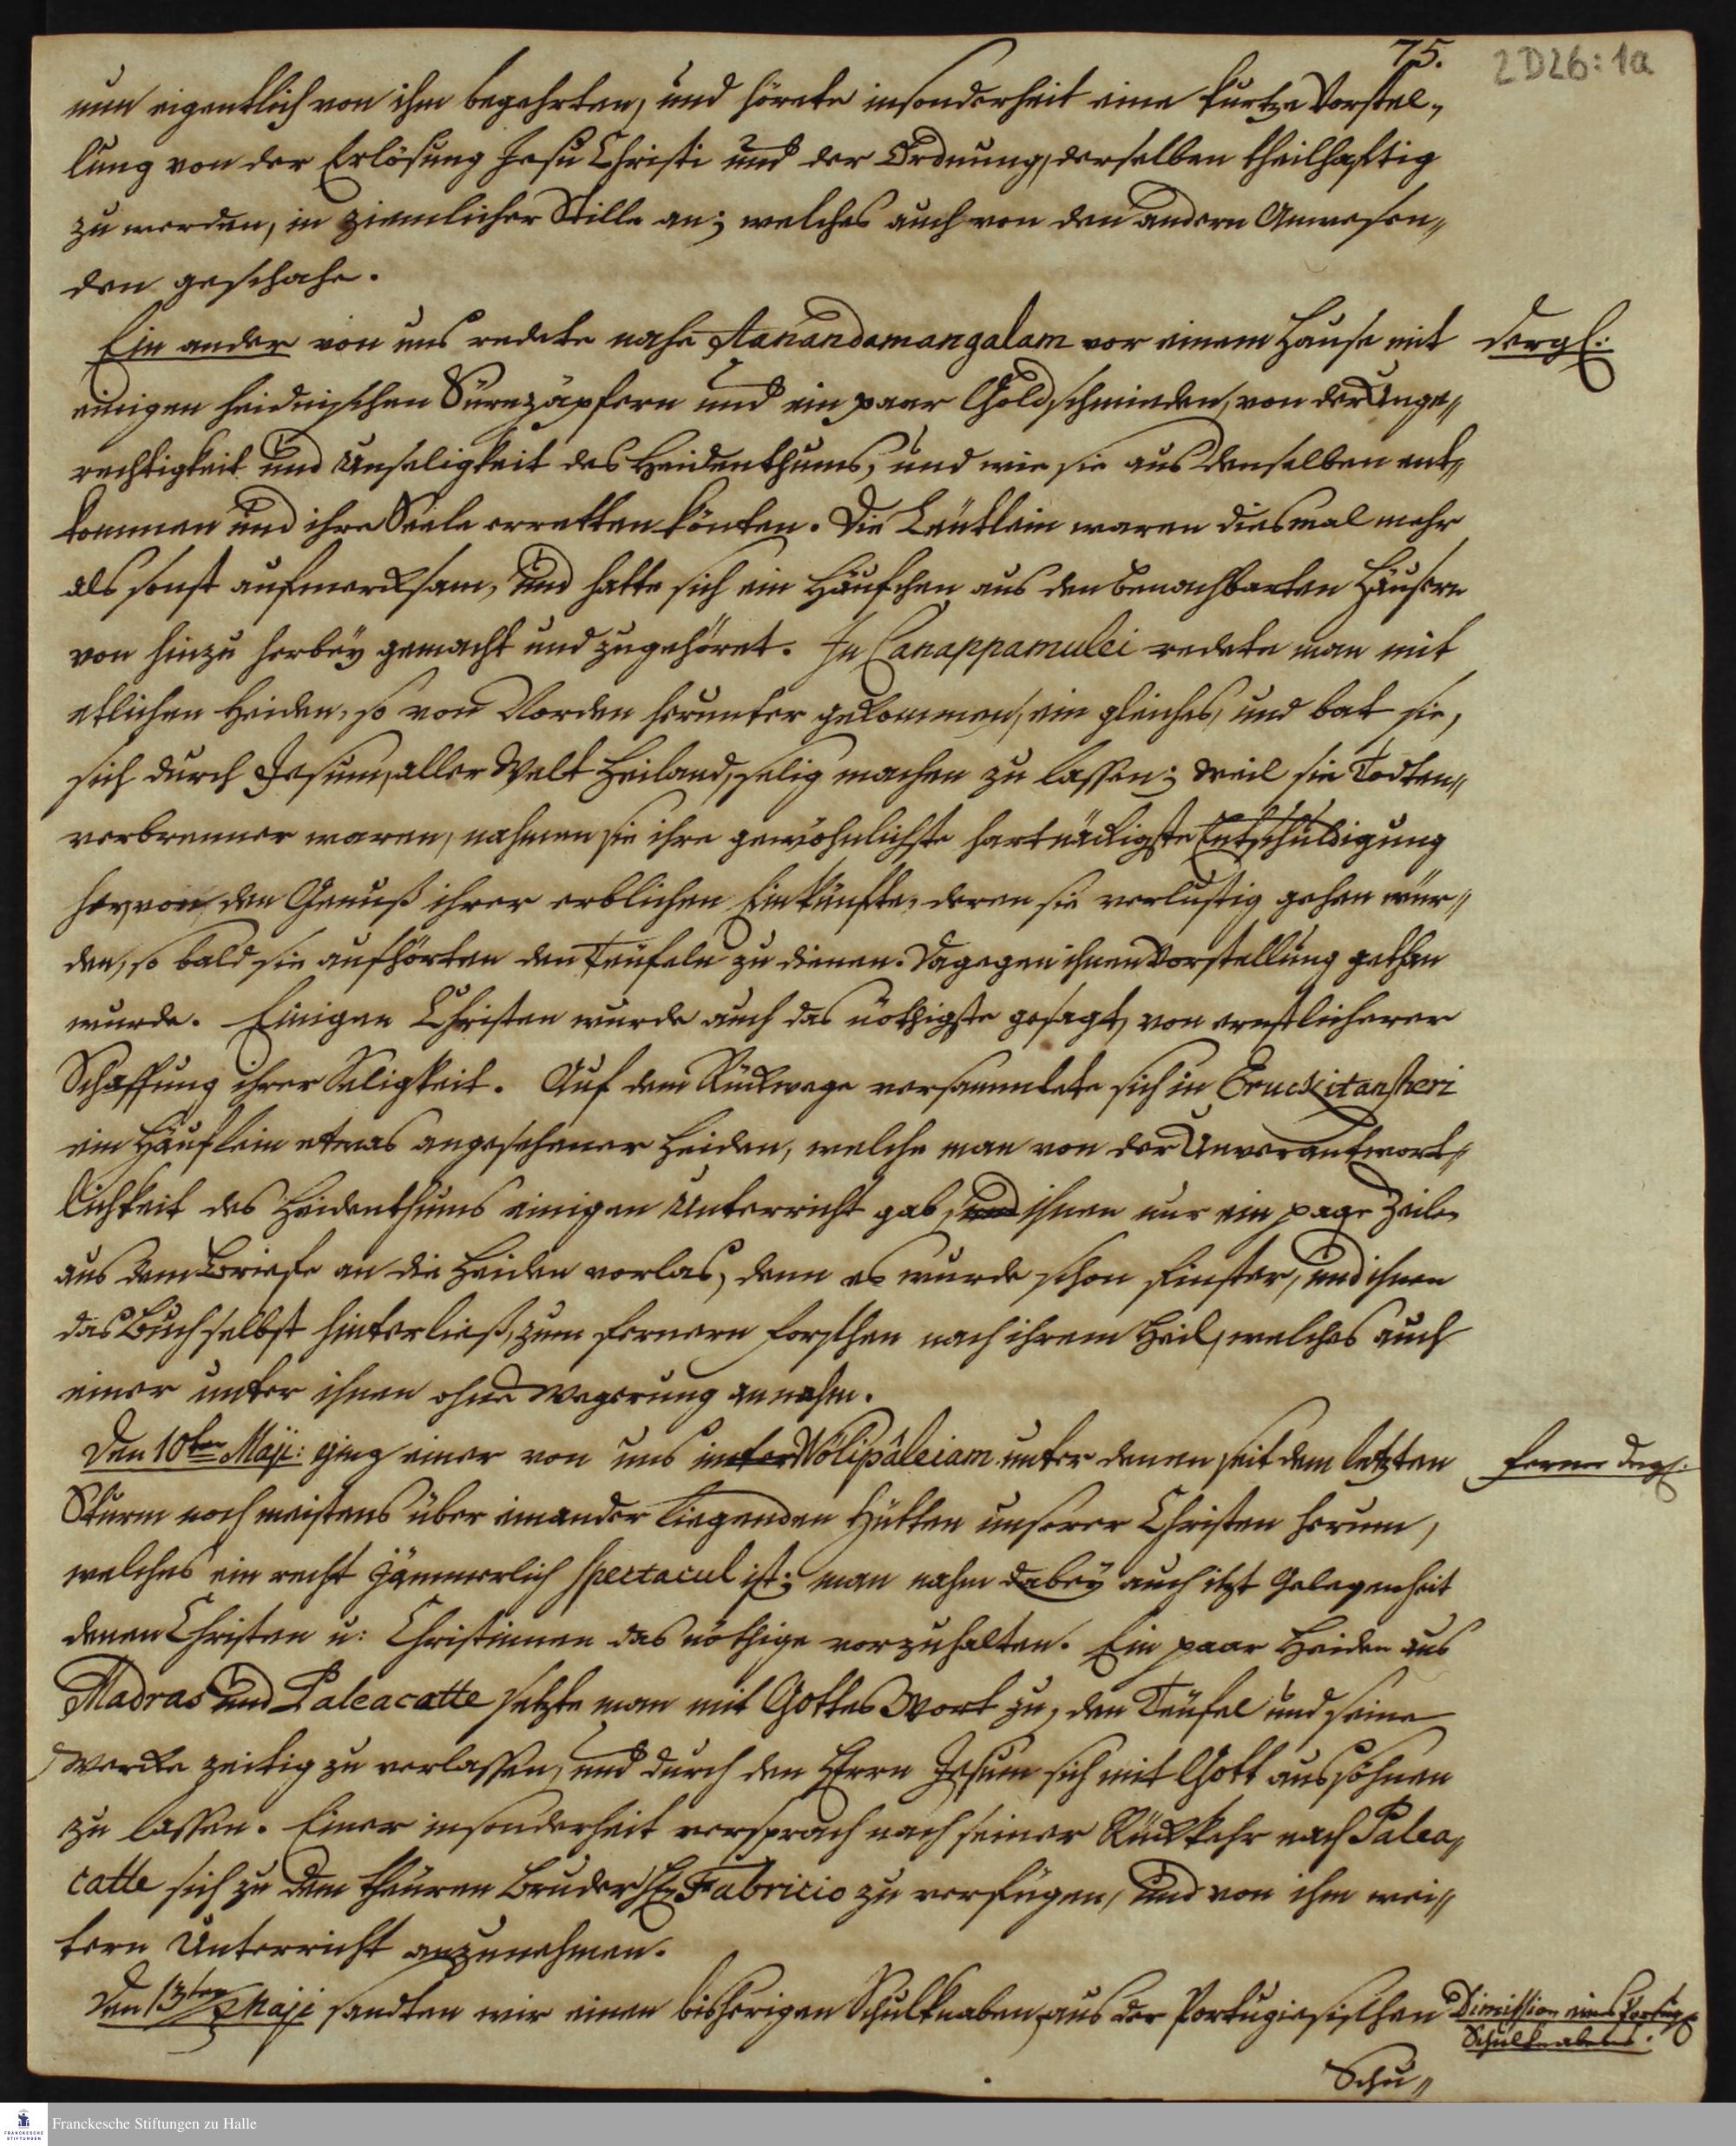 75.
2D26:1a
nun eigentlich von ihm begehrten, und hörete insonderheit eine kurtze Vorstel-
lung von der Erlösung Jesu Christi und der Ordnung, derselben theilhaftig
zu werden, in ziemlicher Stille an; welches auch von den andern Anwesen-
den geschahe.
Ein ander von uns redete nahe Aanandamangalam vor einem Hause mit
dergl:
einigen heidnischen Sürezäpfern und ein paar Goldschmieden, von der Unge-
rechtigkeit und Unseligkeit des Heidenthums, und wie sie aus denselben ent-
kommen und ihre Seele erretten könten. Die Leutlein waren diesmal mehr
als sonst aufmercksam, und hatte sich ein Häufchen aus den benachbarten Häusern
von hinzu herbey gemacht und zugehöret. In Canappamulei redete man mit
etlichen Heiden, so von Norden herunter gekommen, ein gleiches, und bat sie,
sich durch Jesum, aller Welt Heiland, selig machen zu lassen; weil sie Todten-
verbrenner waren, nahmen sie ihre gewöhnlichste hartnäckigste Entschuldigung
her von den Genuß ihrer erblichen Einkünfte, deren sie verlustig gehen wür-
den, so bald sie aufhörten den Teufeln zu dienen. Dagegen ihnen Vorstellung gethan
wurde. Einigen Christen wurde auch das nöthigste gesagt, von ernstlicherer
Schaffung ihrer Seligkeit. Auf dem Rückwege versammlete sich in Eruckitanscheri
ein Häuflein etwas angesehener Heiden, welche man von der Unverantwort-
lichkeit des Heidenthums einigen Unterricht gab, und ihnen nur ein paar Zeilen
aus dem Briefe an die Heiden vorlas, denn es wurde schon finster, und ihnen
das Buch selbst hinterließ, zum fernern forschen nach ihrem Heil, welches auch
einer unter ihnen ohne Wegerung annahm.
Den 10ten Maji: ging einer von uns in Wölipâleiam unter denen seit dem letzten
ferner dergl.
Sturm noch meistens über einander liegenden Hütten unserer Christen herum,
welches ein recht jämmerlich spectacul ist; man nahm dabey auch itzt Gelegenheit
denen Christen u: Christinnen das nöthige vorzuhalten. Ein paar Heiden aus
Madras und Paleacatte setzte man mit Gottes Wort zu, den Teufel und seine
Wercke zeitig zu verlassen, und durch den Herrn Jesum sich mit Gott aussöhnen
zu lassen. Einer insonderheit versprach nach seiner Rückkehr nach Palea-
catte sich zu dem theuren Bruder Hr. Fabricio zu verfügen, und von ihm wei-
tern Unterricht anzunehmen.
Den 13ten Maji sandten wir einen bisherigen Schulknaben, aus der Portugiesischen
Dimission eines Portug.
Schulknabens.
Schu-
Franckesche Stiftungen zu Halle
FRANCKESCHE
STIFTUNGEN